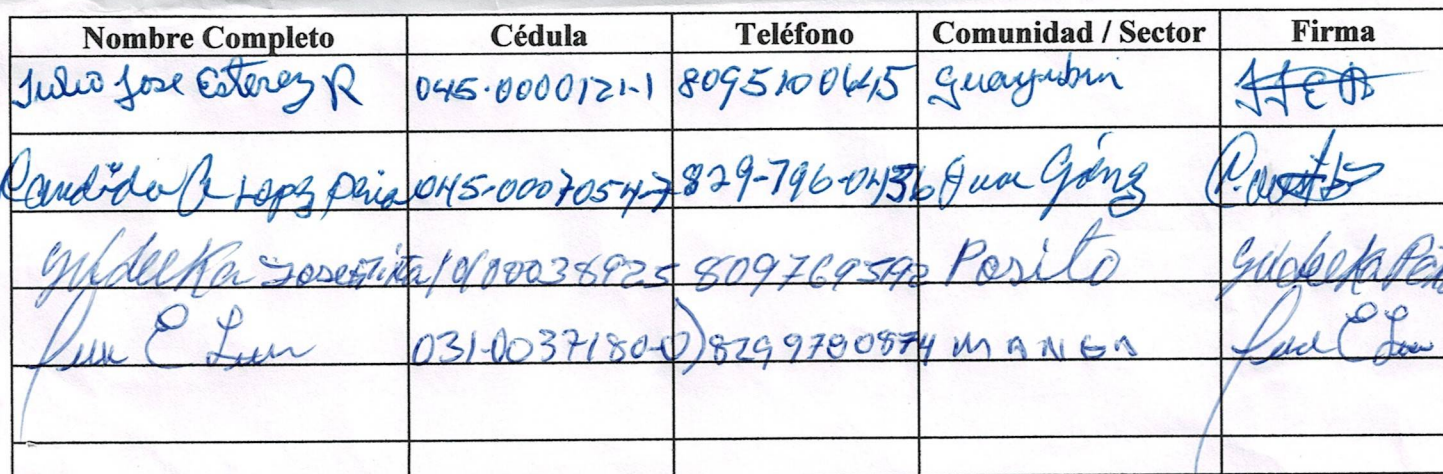 Nombre Completo Cédula Teléfono Comunidad / Sector Firma
Julio Jose Esterez R 045-0000121-1 8095100645 guayubin JJER
Candida R Lopez Peña 045-0007054-7 829-796-0436 Juan Gómez
Josefina 10100038925 8097695192 Posito
Juan E Luna 031-0037180-0 8299780874 MANGA Juan E Luna